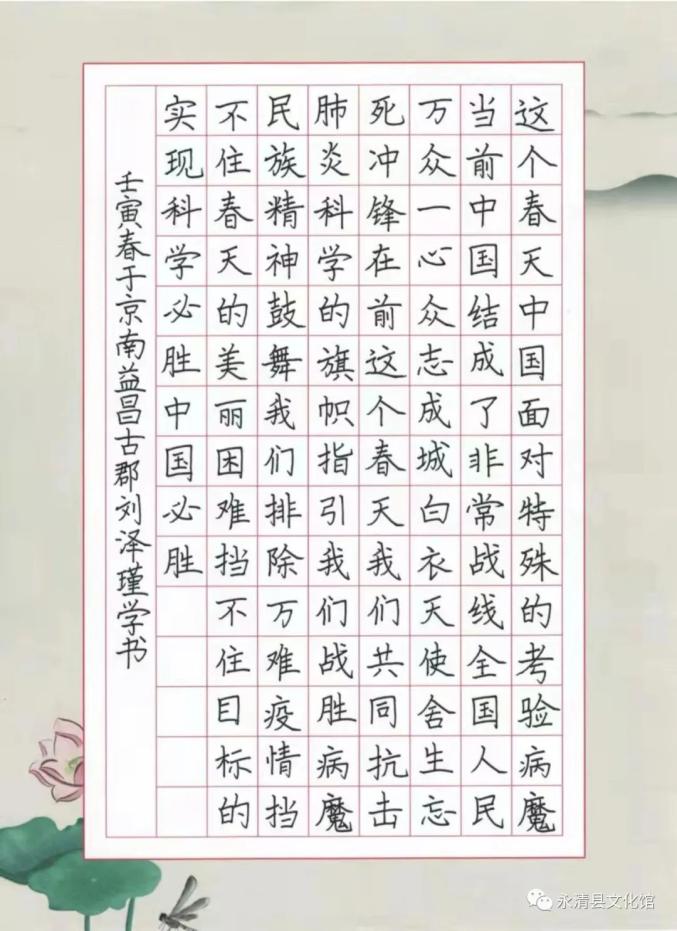 这个春天中国面对特殊的考验病魔
当前中国结成了非常战线全国人民
万众一心众志成城白衣天使舍生忘
死冲锋在前这个春天我们共同抗击
肺炎科学的旗帜指引我们战胜病魔
民族精神鼓舞我们排除万难疫情挡
不住春天的美丽困难挡不住目标的
实现科学必胜中国必胜
壬寅春于京南益昌古郡刘泽瑾学书
永清县文化馆